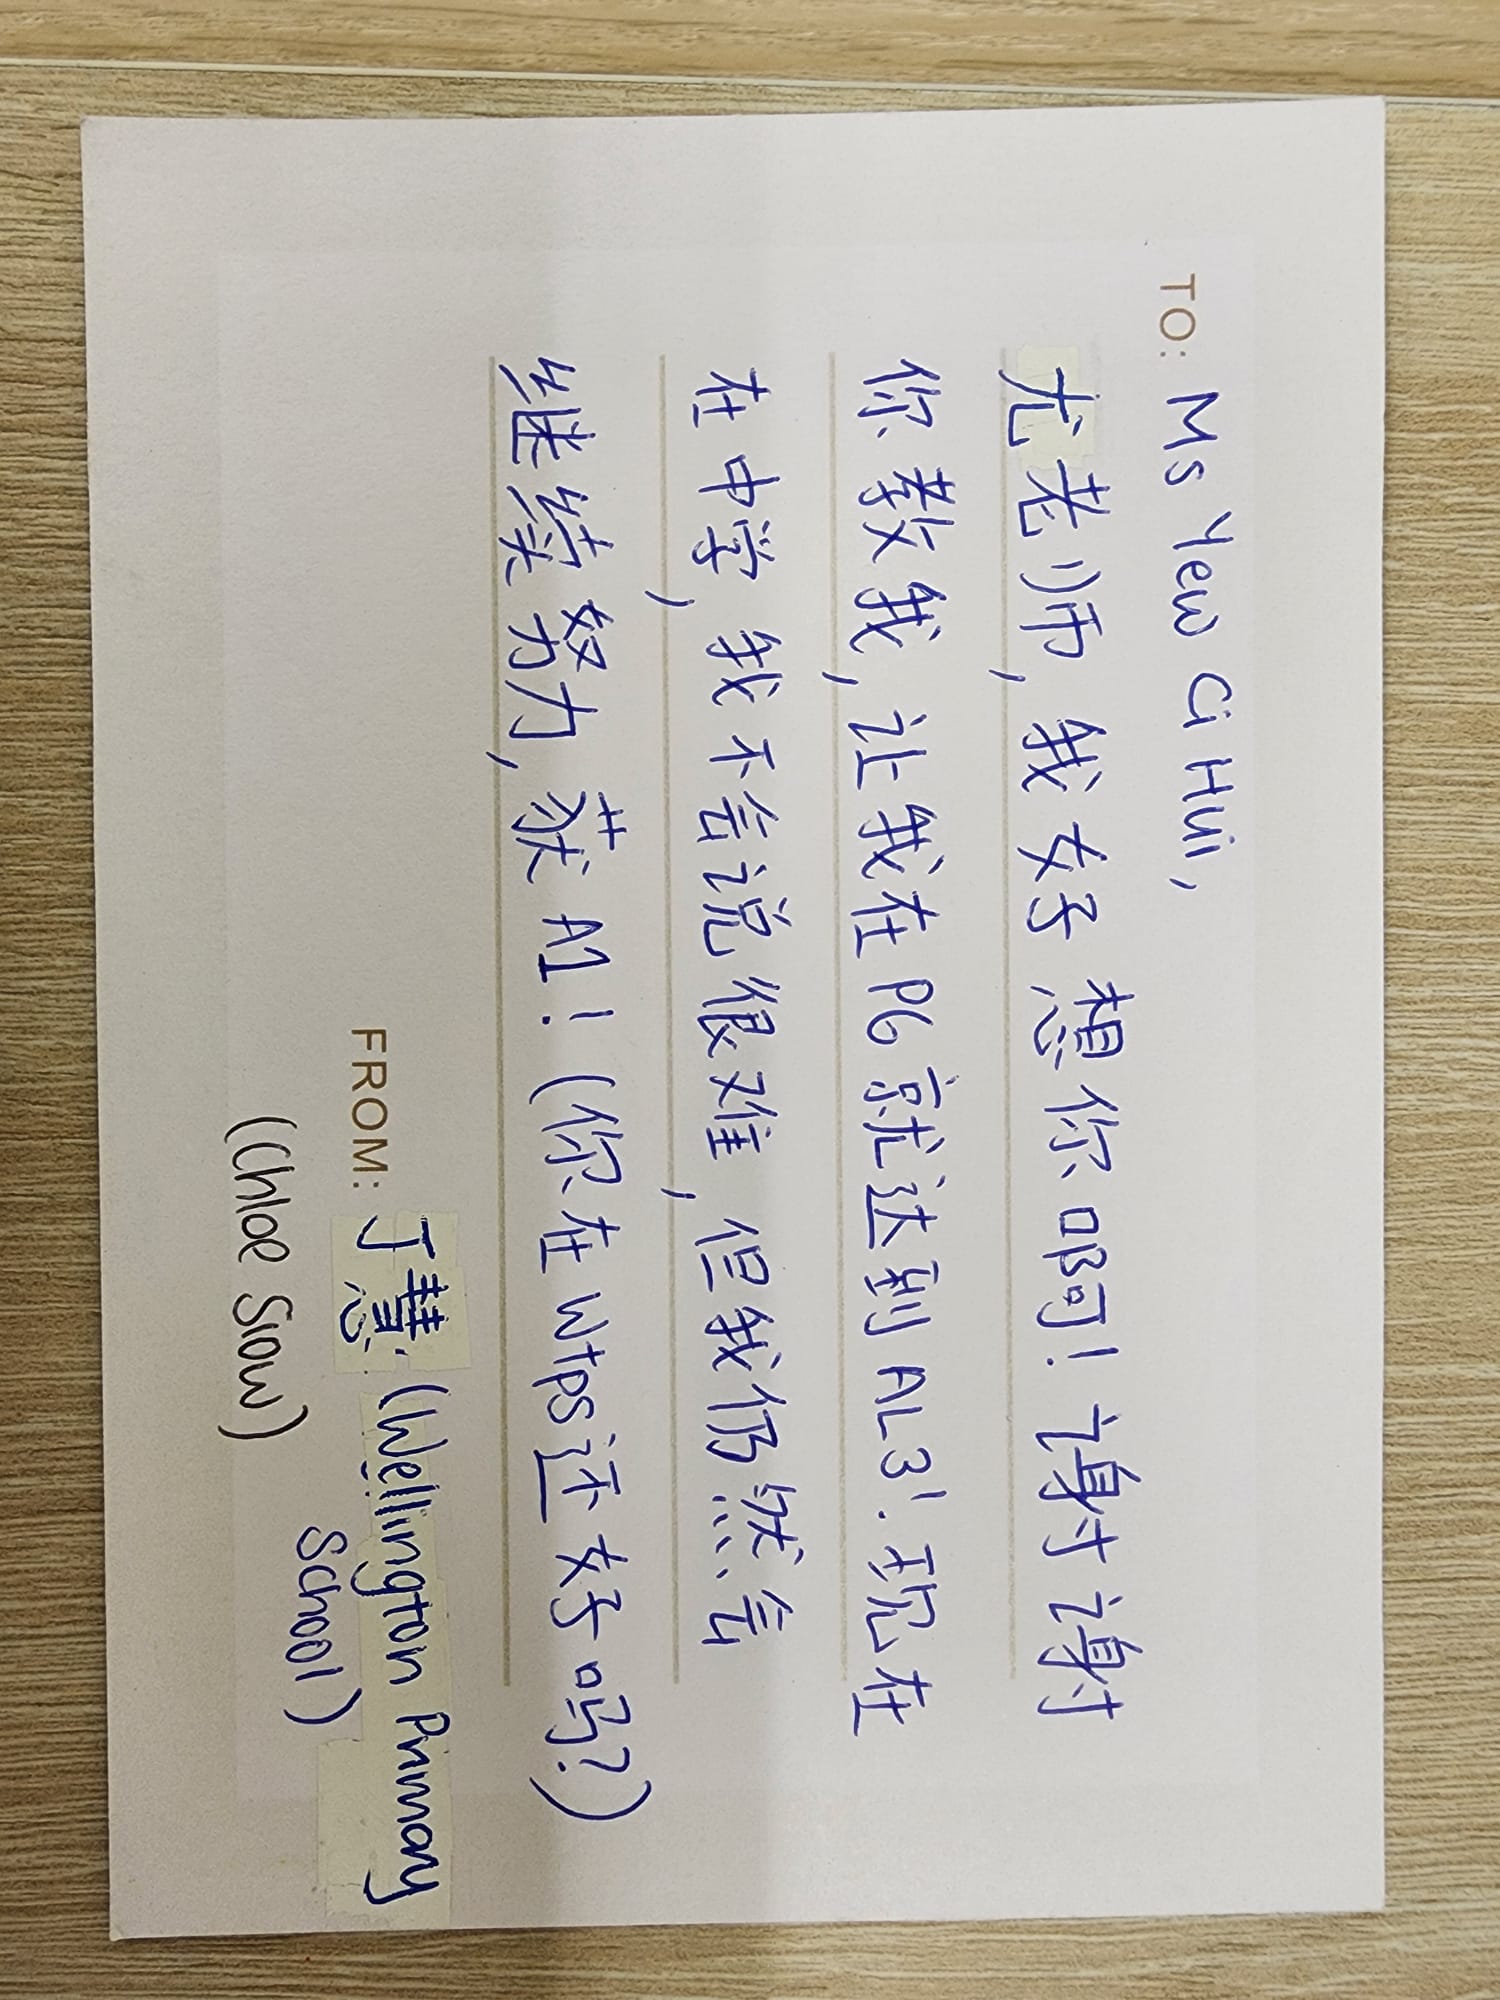 TO: Ms Yew Ci Hui,
尤老师,我好想你啊!谢谢
你教我,让我在P6就达到AL3!现在
在中学,我不会说很难,但我仍然会
继续努力,获A1!(你在Wtps还好吗?)
FROM: 丁慧(Wellington Primary
School)
(Chloe Siow)